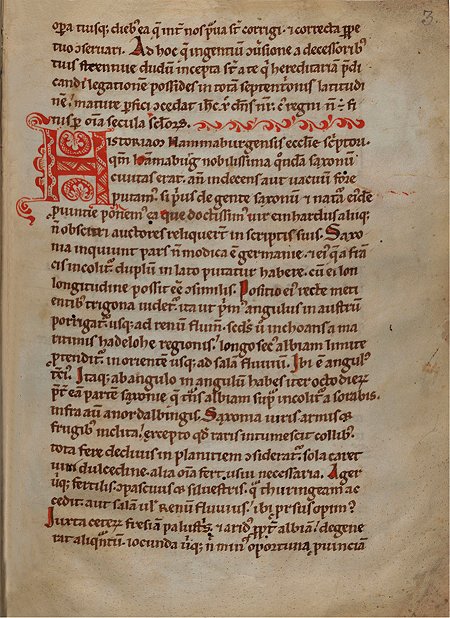 3
op̄a tiusq; dieb; ea q̄ int̄ nos p̄ua st̄ corrigi ⁊ correcta ꝑpe
tuo ɔseruari. Ad hoc q̄ ingentiū ɔūsione a decessorib;
tuis strennue dudū incepta st̄ a te q̄ hereditariā p̄di
candi legationē possides in totā septentrionis latitudi
nē
fin̄ ꝑ om̄ia secula sc̄lorꝫ.
HISTORIAM Hammaburgensis ecclīe sc̄ptori
qm̄ Hāmabug nobilissima q̄ndā saxonū
ciuitas erat. aut
putam᷒ si pri᷒ de gente saxonū ⁊ natura ei᷒dē
ꝓuintie ponem᷒ ea que doctissim᷒ uir einhardus aliiq;
ñ obscuri auctores reliquer̄t in scriptis suis. Saxo
nia inquiunt pars ñ modica ē germanie ⁊ ei᷒ q̄ a frā
cis incolit᷒ duplū in lato putatur habere. cū ei lon
longitudine possit eē ɔsimilis. Positio ei᷒ recte meti
entib; trigona uidet᷒. ita ut prim᷒ angulus in austrū
porrigat᷒ usq; ad renū fluuiū. secds̄ ū inchoans a ma
ritimis hadelohe regionis longo secus albiam limite
ꝓtendit᷒ in oriente usq; ad salā fluuiū. Ibi ē angul᷒
tci᷒. Itaq; ab angulo in angulū habes iter octo dierꝫ
pt̄ ea parte saxonie q̄ t̄ns albiam sup̄i incolit᷒ a sorabis.
infra aū a nordalbingis. Saxonia uiris armis ⁊
frugib; inclita excepto qđ raris intumescit collib;
tota fere decliuis in planitiem ɔsiderat᷒. sola caret
uini dulcedine. alia om̄ia fert usui necessaria. Ager
ubiq; fertilis ɔpascuus ⁊ siluestris. q̄ thuringeam ac
cedit aut salā uł Renū fluuius ibi prorsus opim᷒
Iuxta ceterꝫ fresiā palustris ⁊ arid᷒ ꝓpt̄ albiā degene
rat aliqntū. iocunda ubiq; ñ min᷒ oportuna ꝓuinciā